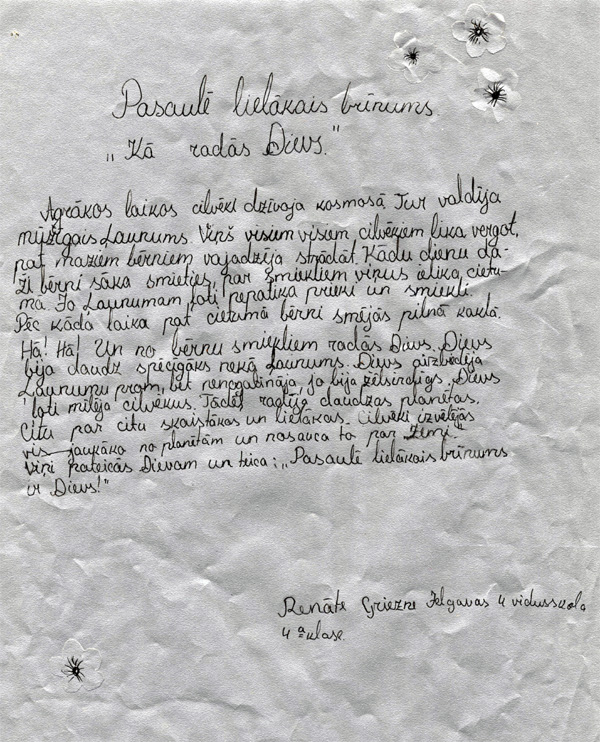 Pasaulē lielākais brīnums.
„Kā radās Dievs."
Agrākos laikos cilvēki dzīvoja kosmosā. Tur valdīja
mūžīgais Ļaunums. Viņš visiem visiem cilvēkiem lika vergot,
pat maziem bērniem vajadzēja strādāt. Kādu dienu da-
ži bērni sāka smieties, par smiekliem viņus ielika cietu-
mā. Jo Ļaunumam ļoti nepatika prieki un smiekli.
Pēc kāda laika pat cietumā bērni smējās pilnā kaklā.
Hā! Hā! Un no bērnu smiekliem radās Dievs. Dievs
bija daudz spēcīgāks nekā Ļaunums. Dievs aizbiedēja
Ļaunumu prom, bet nenogalināja, jo bija žēlsirdīgs. Dievs
ļoti mīlēja cilvēkus. Tādēļ radīja daudzas planētas.
Citu par citu skaistākas un lielākas. Cilvēki izvēlējās
vis jaukāko no planētām un nosauca to par Zemi.
Viņi pateicās Dievam un teica: „Pasaulē lielākais brīnums
ir Dievs!"
Renāte Griezne Jelgavas 4 vidusskola
4ª klase.